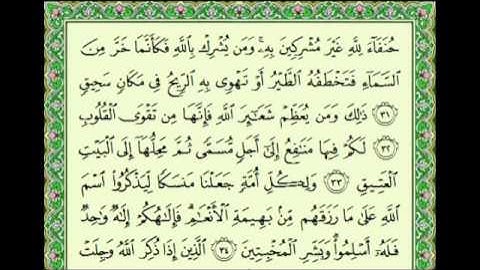 حُنَفَآءَ لِلَّهِ غَيْرَ مُشْرِكِينَ بِهِۦۚ وَمَن يُشْرِكْ بِٱللَّهِ فَكَأَنَّمَا خَرَّ مِنَ
ٱلسَّمَآءِ فَتَخْطَفُهُ ٱلطَّيْرُ أَوْ تَهْوِى بِهِ ٱلرِّيحُ فِى مَكَانٍ سَحِيقٍ
٣١ ذَٰلِكَ وَمَن يُعَظِّمْ شَعَٰٓئِرَ ٱللَّهِ فَإِنَّهَا مِن تَقْوَى ٱلْقُلُوبِ
٣٢ لَكُمْ فِيهَا مَنَٰفِعُ إِلَىٰٓ أَجَلٍ مُّسَمًّى ثُمَّ مَحِلُّهَآ إِلَى ٱلْبَيْتِ
ٱلْعَتِيقِ ٣٣ وَلِكُلِّ أُمَّةٍ جَعَلْنَا مَنسَكًا لِّيَذْكُرُوا۟ ٱسْمَ
ٱللَّهِ عَلَىٰ مَا رَزَقَهُم مِّنۢ بَهِيمَةِ ٱلْأَنْعَٰمِۗ فَإِلَٰهُكُمْ إِلَٰهٌ وَٰحِدٌ
فَلَهُۥٓ أَسْلِمُوا۟ۗ وَبَشِّرِ ٱلْمُخْبِتِينَ ٣٤ ٱلَّذِينَ إِذَا ذُكِرَ ٱللَّهُ وَجِلَتْ